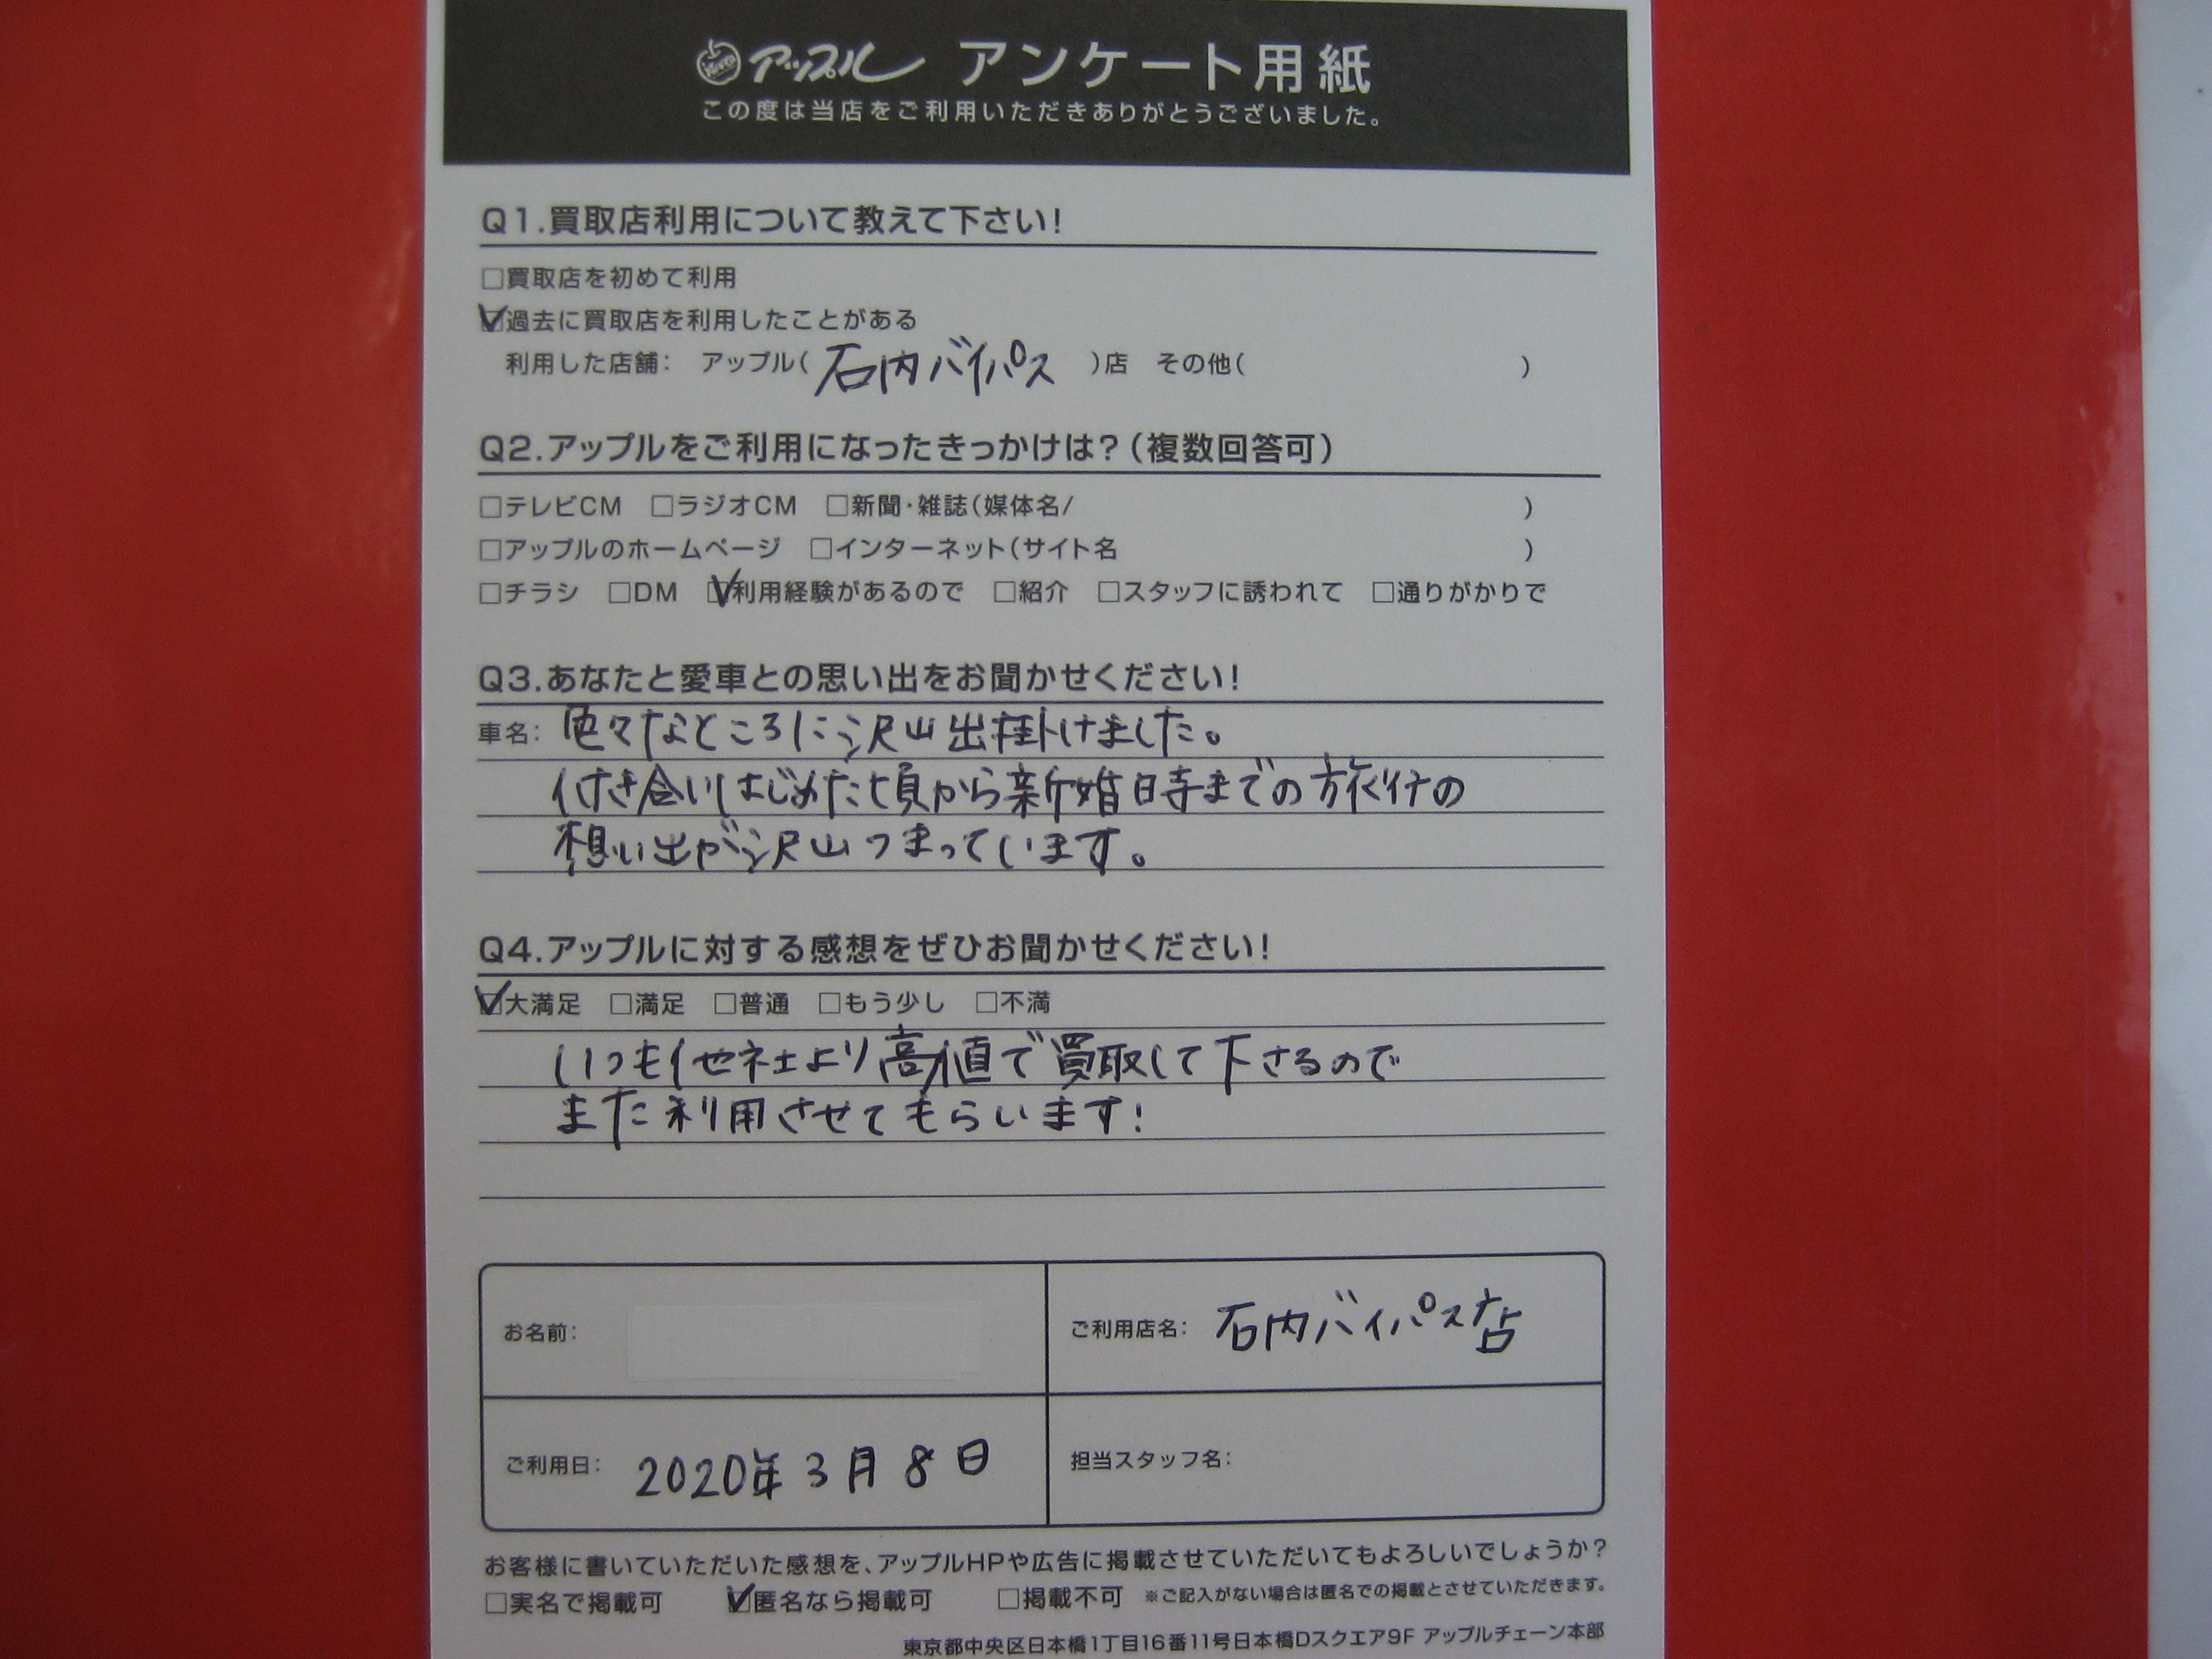 アップル アンケート用紙
この度は当店をご利用いただきありがとうございました。
Q1.買取店利用について教えて下さい!
□買取店を初めて利用
☑過去に買取店を利用したことがある
利用した店舗: アップル(石内バイパス)店 その他( )
Q2.アップルをご利用になったきっかけは?(複数回答可)
□テレビCM □ラジオCM □新聞・雑誌(媒体名/ )
□アップルのホームページ □インターネット(サイト名 )
□チラシ □DM ☑利用経験があるので □紹介 □スタッフに誘われて □通りがかりで
Q3.あなたと愛車との思い出をお聞かせください!
車名: 色々なところに沢山出掛けました。
付き合いはじめた頃から新婚時までの旅行の
想い出が沢山つまっています。
Q4.アップルに対する感想をぜひお聞かせください!
☑大満足 □満足 □普通 □もう少し □不満
いつも他社より高値で買取して下さるので
また利用させてもらいます!
お名前:
ご利用店名: 石内バイパス店
ご利用日: 2020年3月8日
担当スタッフ名:
お客様に書いていただいた感想を、アップルHPや広告に掲載させていただいてもよろしいでしょうか?
□実名で掲載可 ☑匿名なら掲載可 □掲載不可 ※ご記入がない場合は匿名での掲載とさせていただきます。
東京都中央区日本橋1丁目16番11号日本橋Dスクエア9F アップルチェーン本部